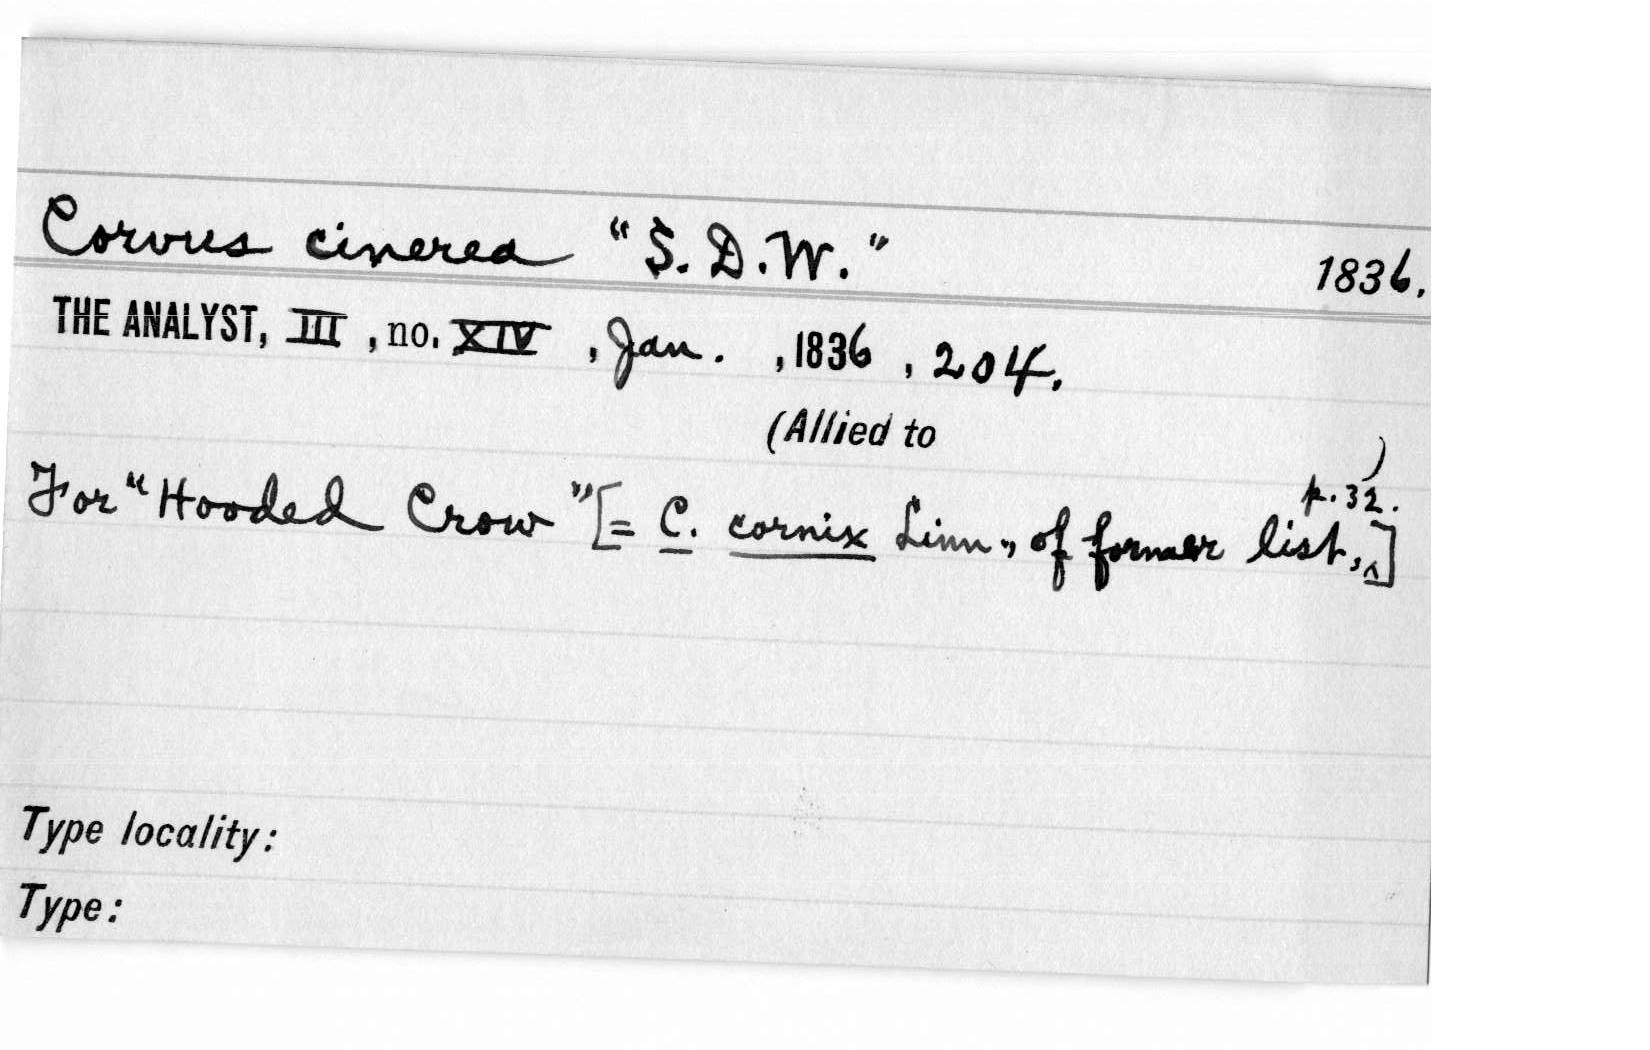 Corvus cinerea "S. D. W." 1836.
THE ANALYST, III, no. XIV, Jan., 1836, 204.
(Allied to )
p. 32.
For "Hooded Crow" [= C. cornix Linn., of former list, ^]
Type locality:
Type: